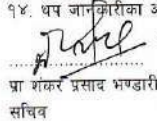 १४. थप जानकारीका
प्रा शंकर प्रसाद भण्डारी
सचिव